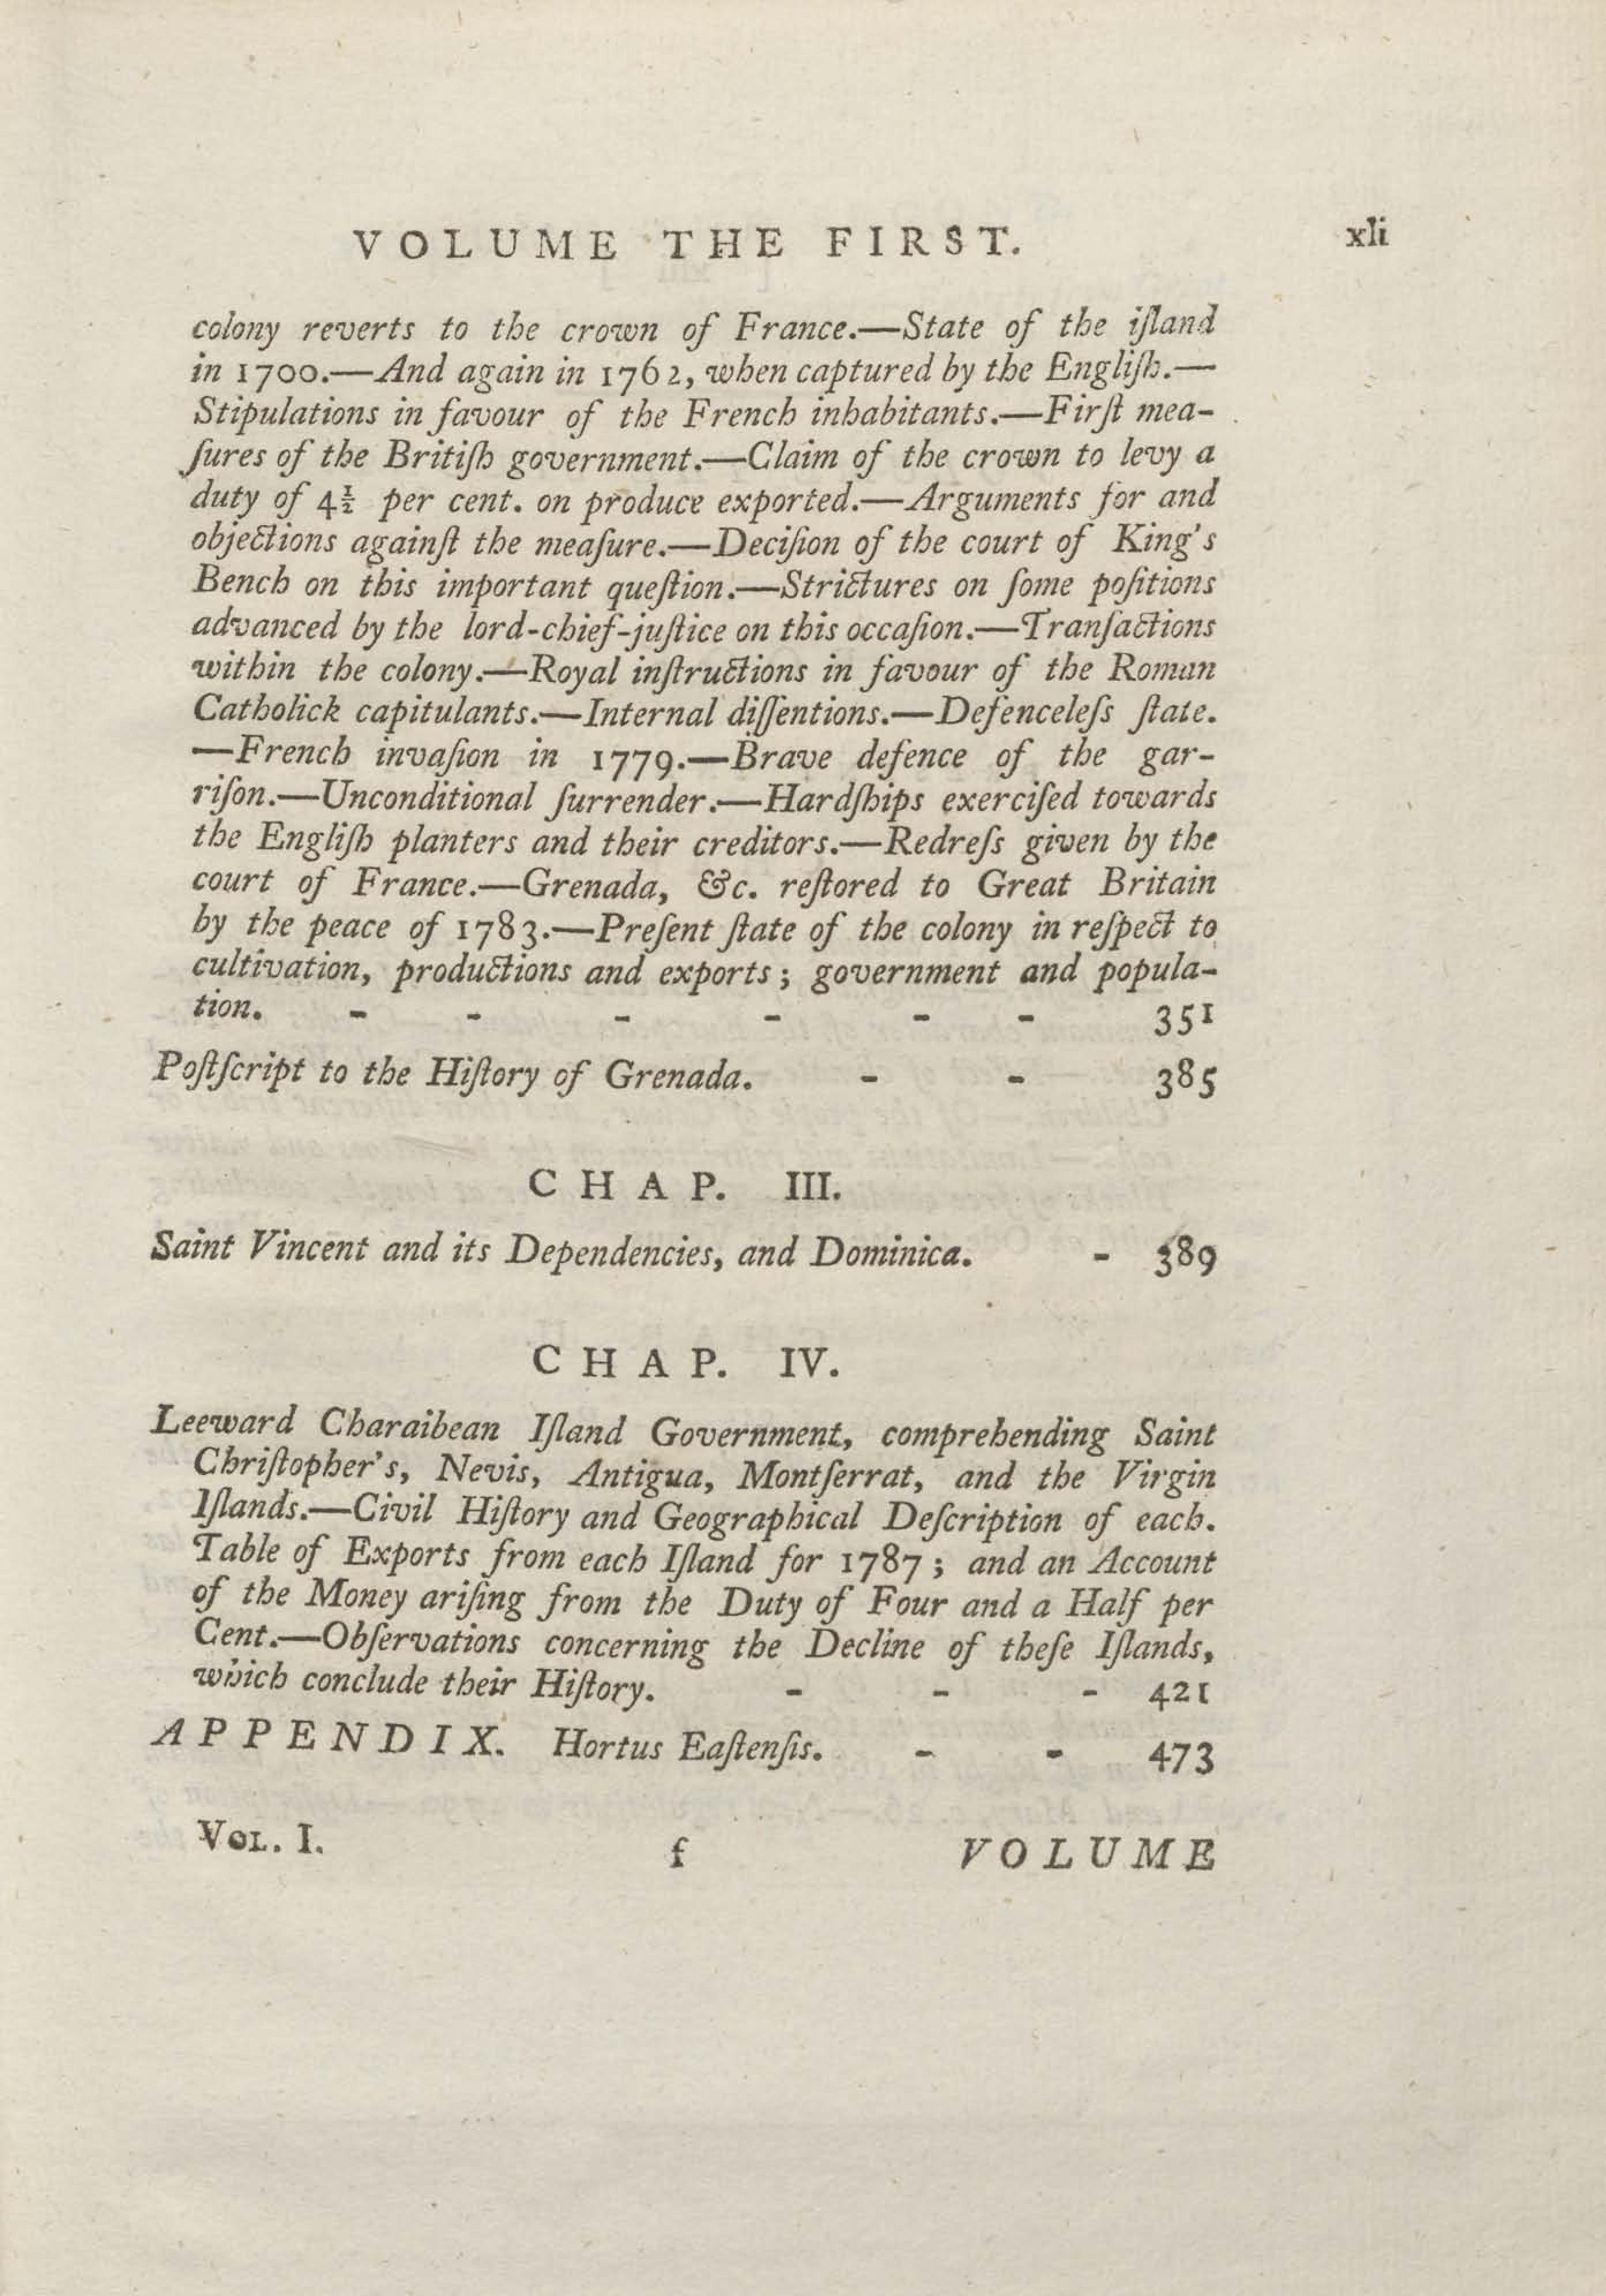 VOLUME THE FIRST. xli
colony reverts to the crown of France.—State of the iſland
in 1700.—And again in 1762, when captured by the Engliſh.—
Stipulations in favour of the French inhabitants.—Firſt mea-
ſures of the Britiſh government.—Claim of the crown to levy a
duty of 4½ per cent. on produce exported.—Arguments for and
objections againſt the meaſure.—Deciſion of the court of King's
Bench on this important queſtion.—Strictures on ſome poſitions
advanced by the lord-chief-juſtice on this occaſion.—Tranſactions
within the colony.—Royal inſtructions in favour of the Roman
Catholick capitulants.—Internal diſſentions.—Defenceleſs ſtate.
—French invaſion in 1779.—Brave defence of the gar-
riſon.—Unconditional ſurrender.—Hardſhips exerciſed towards
the Engliſh planters and their creditors.—Redreſs given by the
court of France.—Grenada, &c. reſtored to Great Britain
by the peace of 1783.—Preſent ſtate of the colony in reſpect to
cultivation, productions and exports; government and popula-
tion. - - - - - - 351
Poſtſcript to the Hiſtory of Grenada. - - 385
CHAP. III.
Saint Vincent and its Dependencies, and Dominica. - 389
CHAP. IV.
Leeward Charaibean Iſland Government, comprehending Saint
Chriſtopher's, Nevis, Antigua, Montſerrat, and the Virgin
Iſlands.—Civil Hiſtory and Geographical Deſcription of each.
Table of Exports from each Iſland for 1787; and an Account
of the Money ariſing from the Duty of Four and a Half per
Cent.—Obſervations concerning the Decline of theſe Iſlands,
which conclude their Hiſtory. - - - 421
APPENDIX. Hortus Eaſtenſis. - - 473
VOL. I. f VOLUME